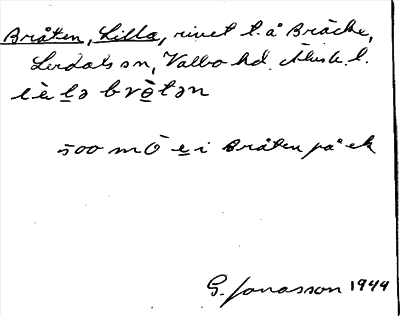 Bråten, Lilla, rivet t. å Bräcke,
Lerdals sn, Valbo hd. Älvsb. l.
lè lə brè tən
500 m Ö e i Bråten på ek
G. Jonasson 1944